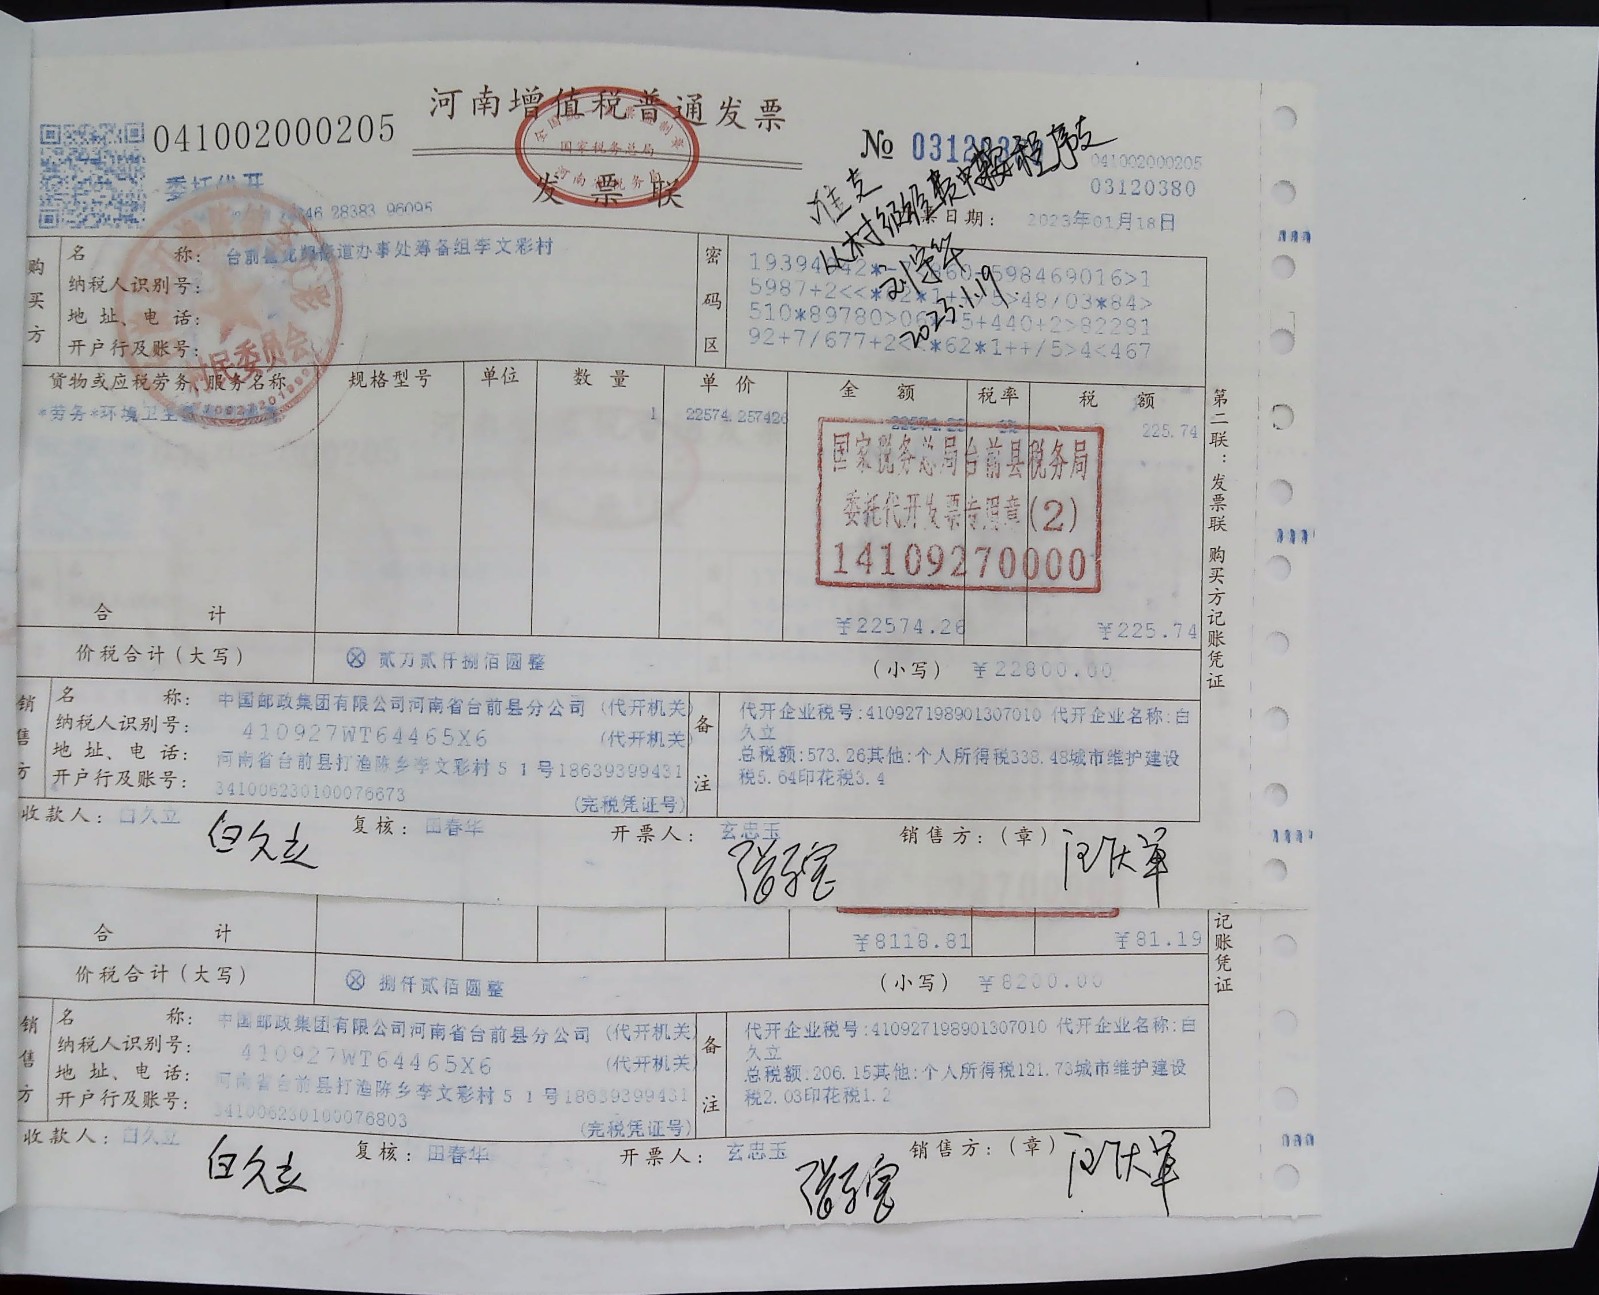 河南增值税普通发票
041002000205
№
041002000205
03120380
委托代开
发票联
全国统一发票监制章
国家税务总局
河南省税务局
28383 96095
日期: 2023年01月18日
准支
从村级经费中按程序支
2023.1.19
购买方
名称: 台前县 街道办事处筹备组李文彩村
纳税人识别号:
地址、电话:
开户行及账号:
村民委员会
密码区
598469016>1
5>48/03*84>
510*89780>06 5+440+2>82281
92+7/677+2< *62*1++/5>4<467
货物或应税劳务、服务名称 规格型号 单位 数量 单价 金额 税率 税额
*劳务*环境卫生 1 22574.257426 22574.26 225.74
国家税务总局台前县税务局
委托代开发票专用章(2)
14109270000
合计 ¥22574.26 ¥225.74
价税合计(大写) ⊗ 贰万贰仟捌佰圆整 (小写) ¥22800.00
第二联:发票联 购买方记账凭证
销售方
名称: 中国邮政集团有限公司河南省台前县分公司 (代开机关)
纳税人识别号: 410927WT64465X6 (代开机关)
地址、电话: 河南省台前县打渔陈乡李文彩村51号18639399431
开户行及账号: 341006230100076673 (完税凭证号)
备注
代开企业税号:410927198901307010 代开企业名称:白
久立
总税额:573.26其他:个人所得税338.48城市维护建设
税5.64印花税3.4
收款人: 白久立 复核: 田春华 开票人: 玄忠玉 销售方:(章)
白久立
合计 ¥8118.81 ¥81.19
价税合计(大写) ⊗ 捌仟贰佰圆整 (小写) ¥8200.00
记账凭证
销售方
名称: 中国邮政集团有限公司河南省台前县分公司 (代开机关)
纳税人识别号: 410927WT64465X6 (代开机关)
地址、电话: 河南省台前县打渔陈乡李文彩村51号18639399431
开户行及账号: 341006230100076803 (完税凭证号)
备注
代开企业税号:410927198901307010 代开企业名称:白
久立
总税额:206.15其他:个人所得税121.73城市维护建设
税2.03印花税1.2
收款人: 白久立 复核: 田春华 开票人: 玄忠玉 销售方:(章)
白久立